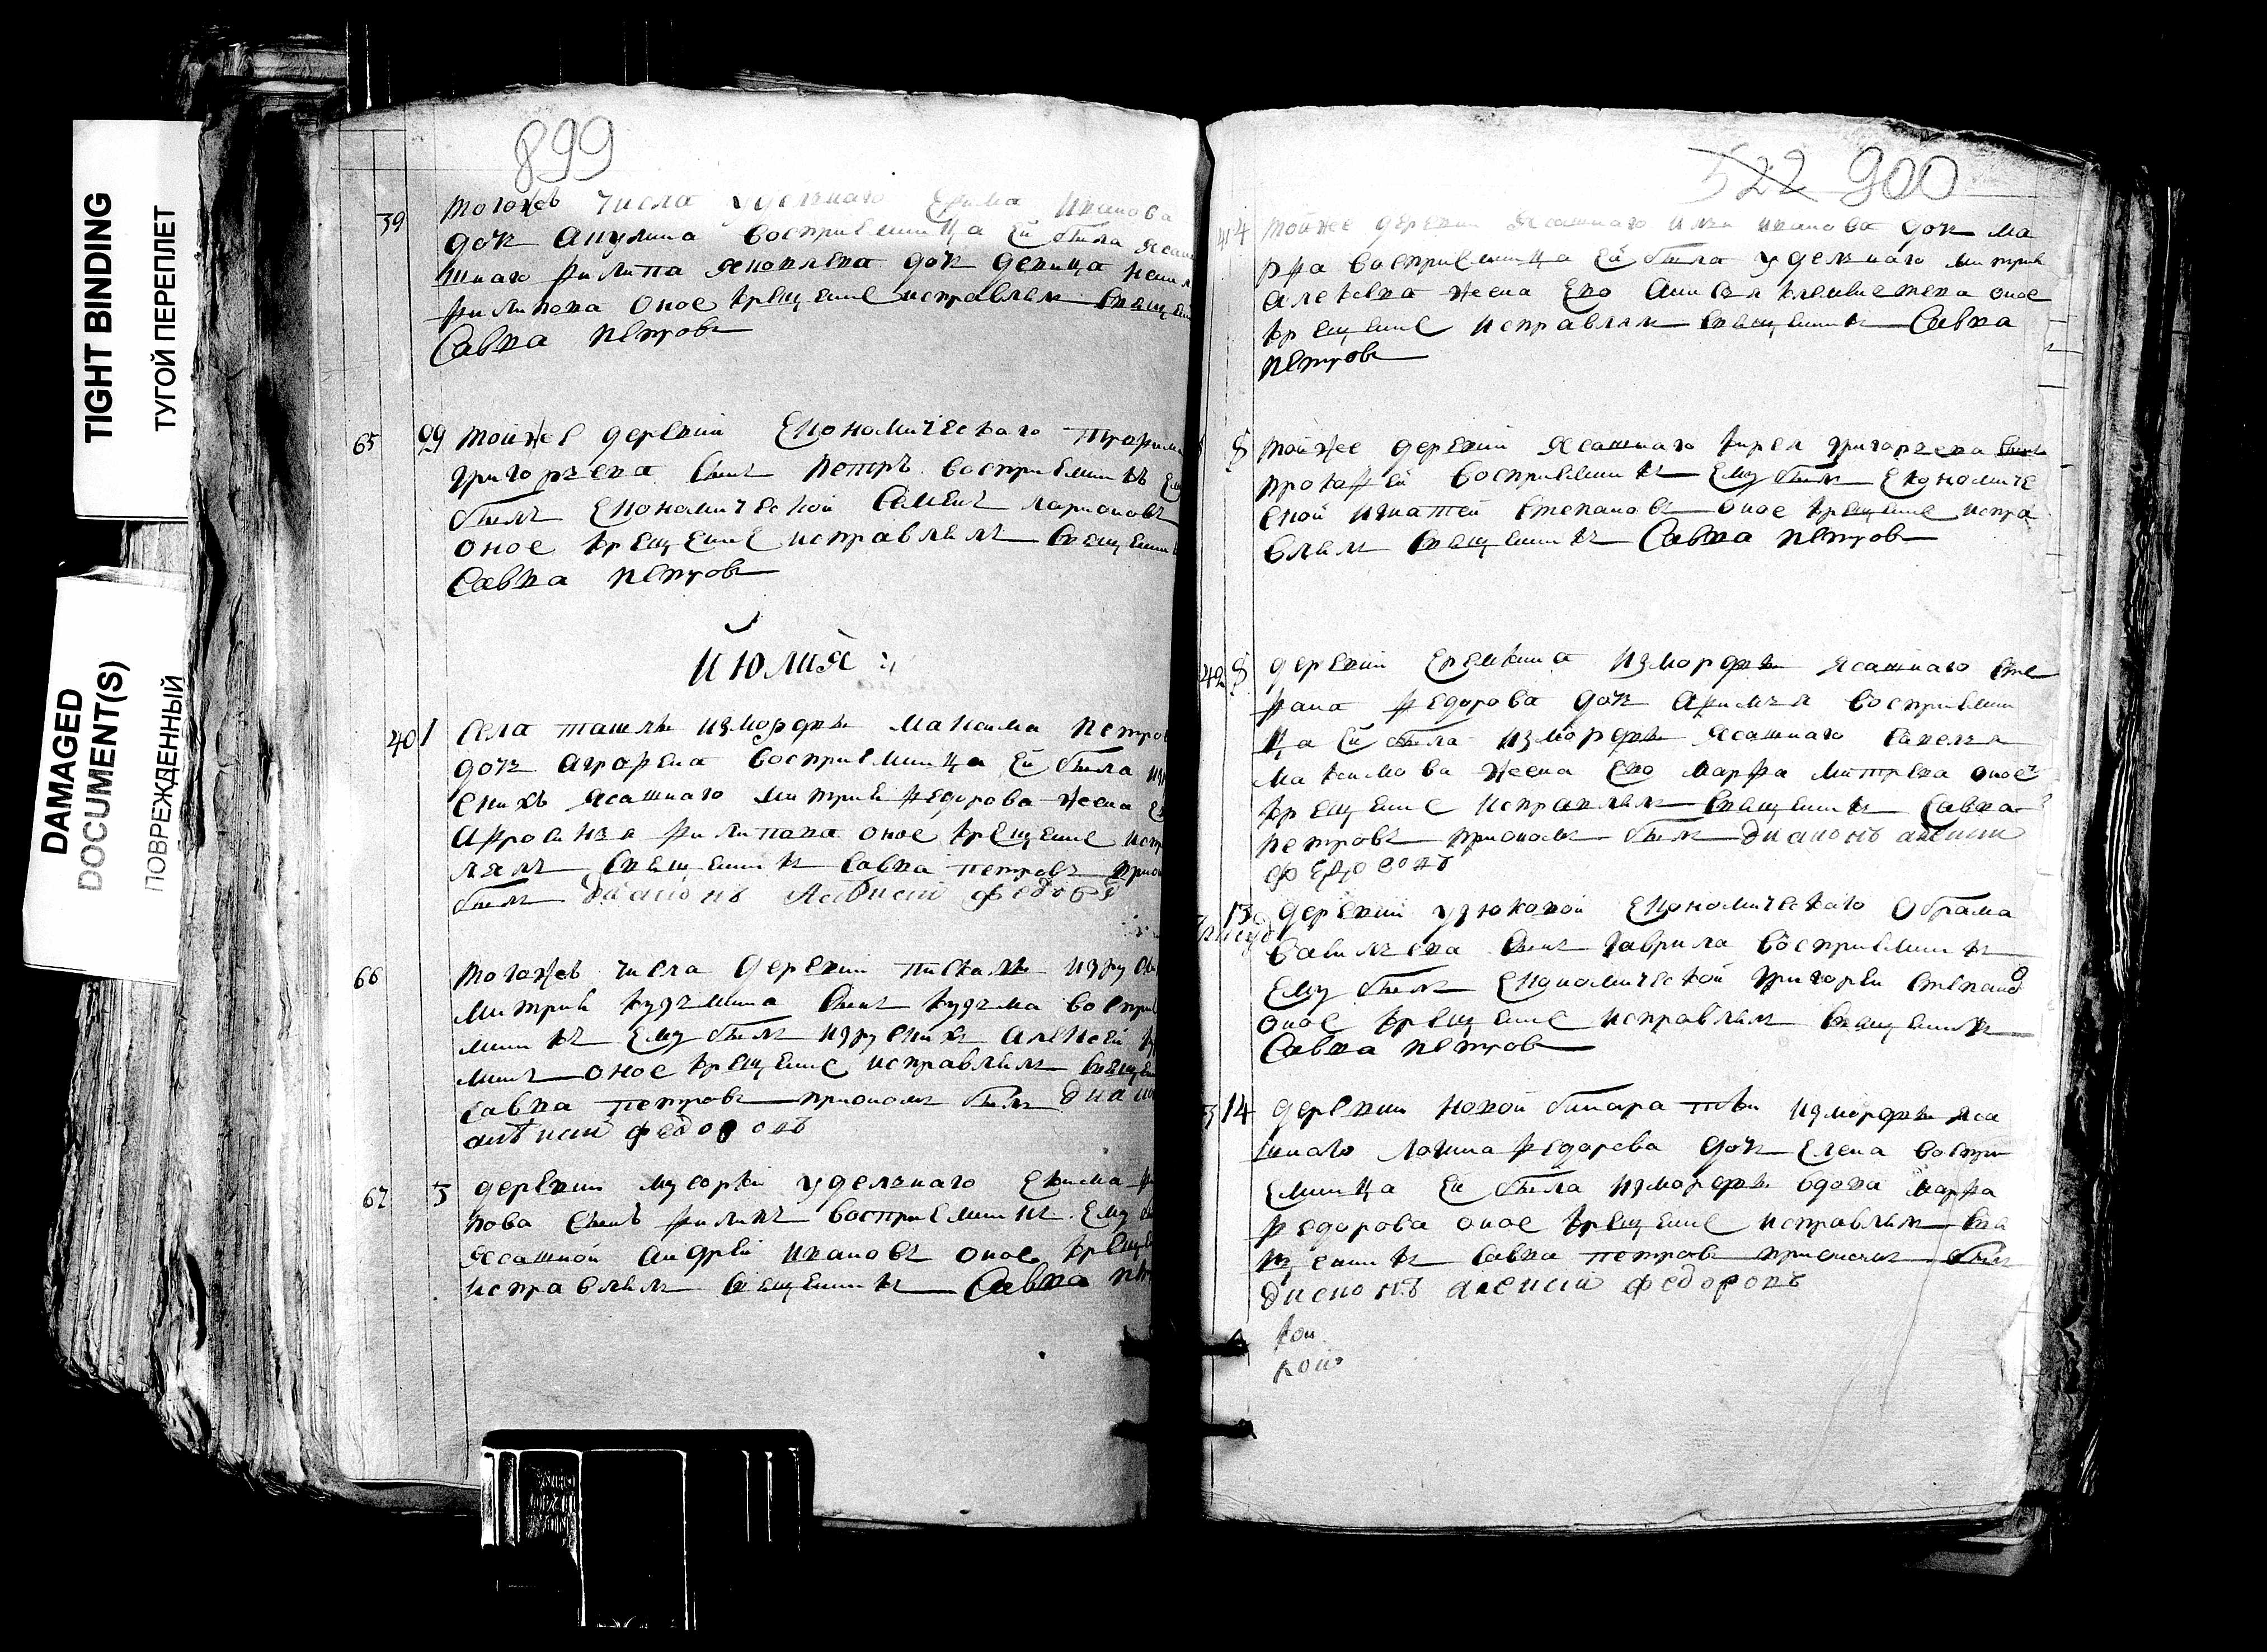 TIGHT BINDING
ТУГОЙ ПЕРЕПЛЕТ
DAMAGED
DOCUMENT(S)
ПОВРЕЖДЕННЫЙ
899
39 Тогожъ числа удельнаго Ефима Иванова
дочь Акулина восприемница ей была ясаш
шнаго Филипа Яковлева дочь девица
Филипова оное крещение исправлялъ священ
Савва Петровъ
65 29 тойже деревни Економическаго Трофима
Григорьева сынъ Петръ восприемникъ ему
былъ Економической Семенъ Ларионовъ
оное крещение исправлялъ священник
Савва Петровъ
Июлия
40 1 села ташлы измордвы Максима Петров
дочь Аграфена восприемница ей была из
ясашнаго Митрия Федорова жена ег
Афросинья Филипова оное крещение испр
лялъ священникъ Савва Петровъ приом
былъ диаконъ Алексей Федоров
66 Тогожъ числа деревни изруски
Митрия Кузьмина сынъ Кузьма воспри
мникъ ему былъ изруских Алексей
оное крещение исправлялъ священ
Савва Петровъ приономъ былъ диако
алексий федоровъ
67 3 деревни мусорки удельнаго Екима
пова сынъ Филипъ восприемникъ ему б
Ясашной Андрей Ивановъ оное креще
исправлялъ священникъ Савва Пет
522 900
4 тойже деревни ясашнаго Ильи Иванова дочь Ма
рфа восприемница ей была удельнаго Митрия
Алексева жена ево Анисья оное
крещение исправлялъ священникъ Савва
Петровъ
8 тойже деревни ясашнаго Кирея Григорьева сынъ
Прокафей восприемникъ ему былъ Економиче
ской Игнатей Степановъ оное крещение испра
влялъ священникъ Савва Петровъ
42 8 деревни Еремкина измордвы ясашнаго Сте
фана Федорова дочь Афимья восприемни
ца ей была измордвы ясашнаго Савелья
Максимова жена ево Марфа Митрева оное
крещение исправлялъ священникъ Савва
Петровъ приономъ былъ диаконъ алексий
федоровъ
13 деревни узюковой Економическаго Обрама
Савельева сынъ Гаврила восприемникъ
ему былъ Економической Григорей Степанов
оное крещение исправлялъ священникъ
Савва Петровъ
14 деревни новой измордвы яса
шнаго Логина Федорова дочь Елена воспри
емница ей была измордвы вдова Марфа
Федорова оное крещение исправлялъ свя
щенникъ Савва Петровъ приономъ былъ
диеконъ алексий федоровъ